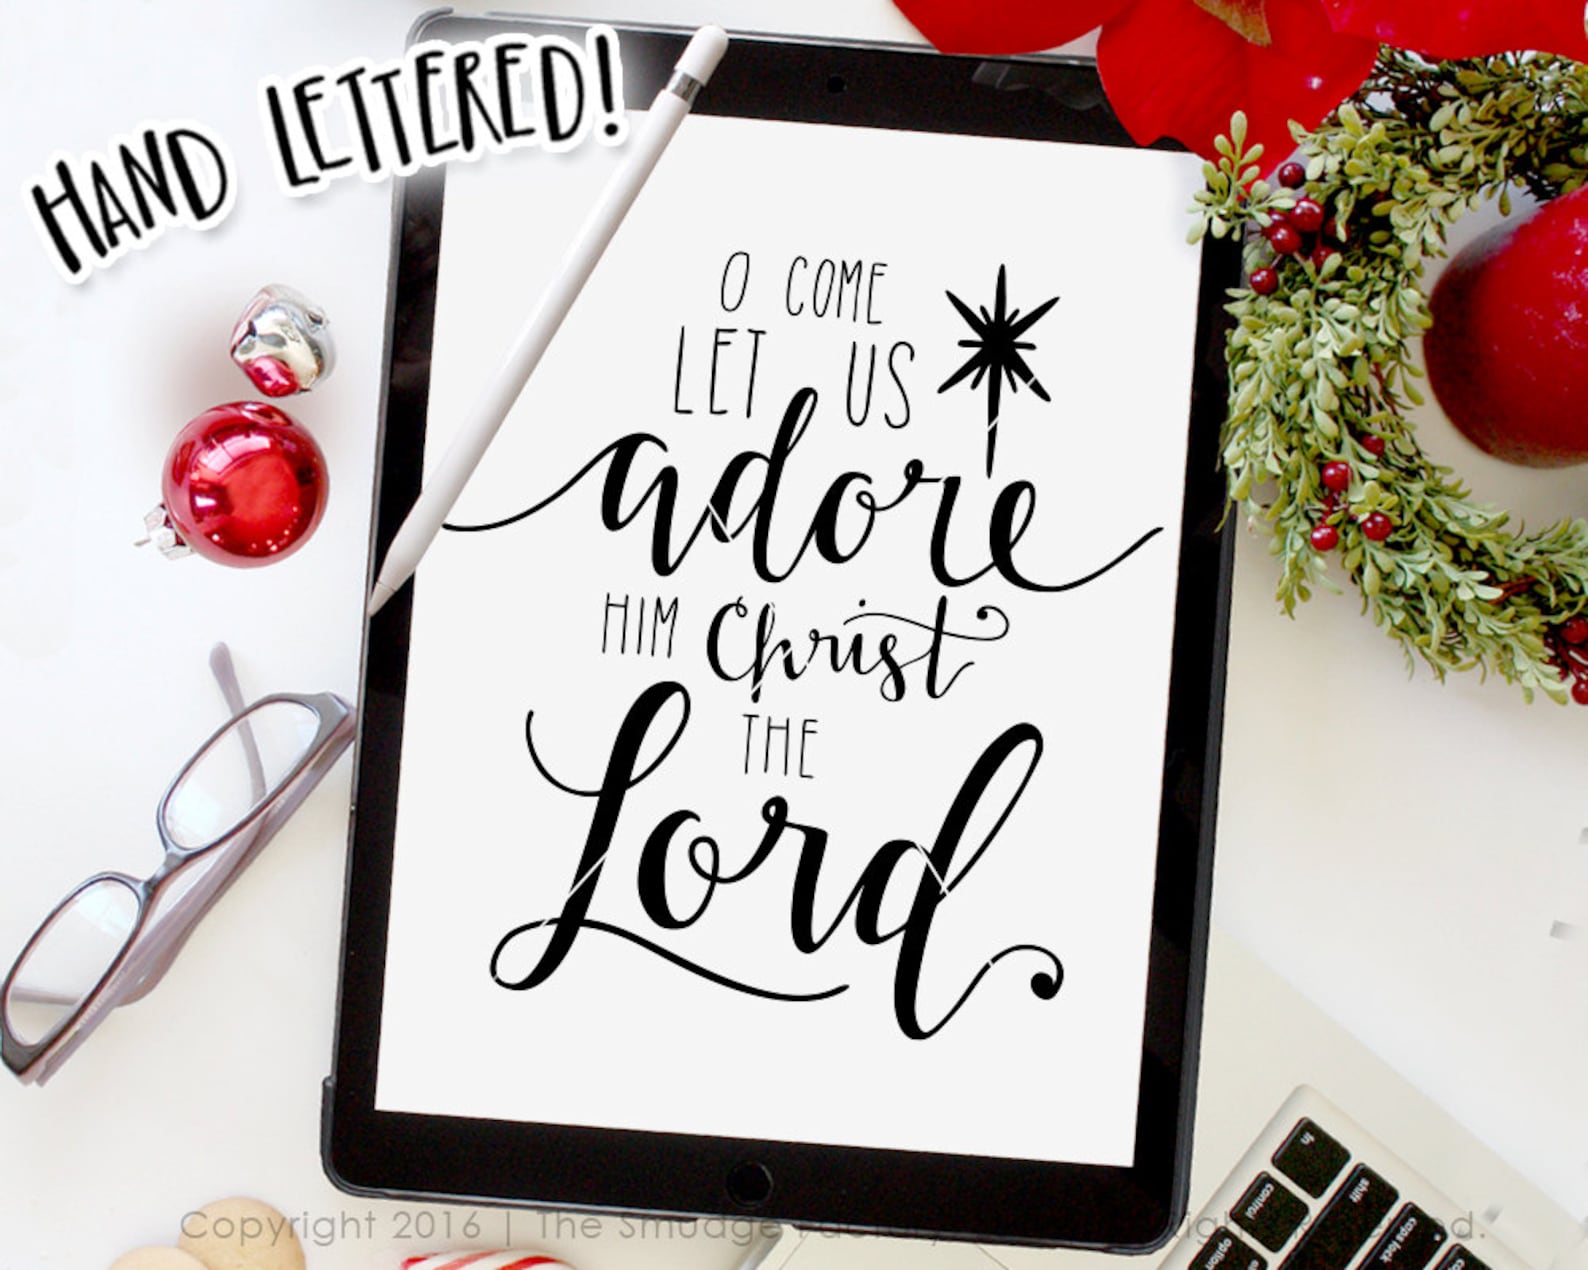 HAND LETTERED!
O COME
LET US
adore
HIM Christ
THE
Lord
fn
control
shift
option
caps lock
Copyright 2016 | The Smudge Factory